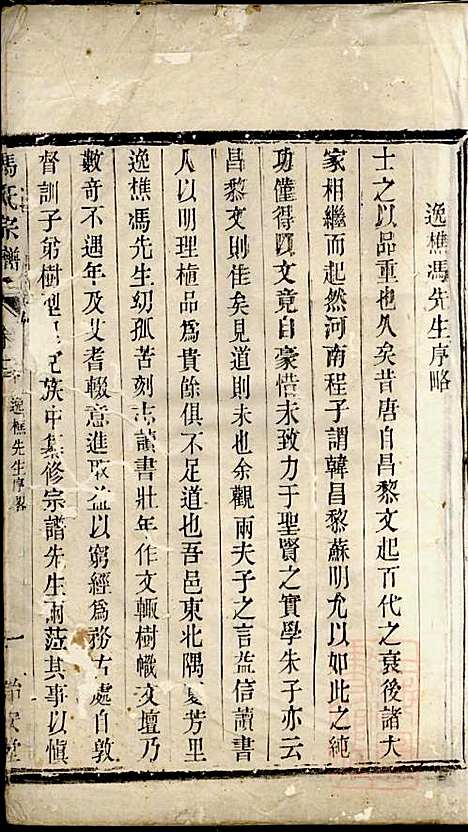 逸樵馮先生序略
士之以品重也久矣昔唐自昌黎文起百代之衰後諸大
家相繼而起然河南程子謂韓昌黎蘇明允以如此之純
功僅得 文竟自豪惜未致力于聖賢之實學朱子亦云
昌黎文則佳矣見道則未也余觀兩夫子之言益信讀書
人以明理植品為貴餘俱不足道也吾邑東北隅夏芳里
逸樵馮先生幼孤苦刻志讀書壯年作文輙樹幟文壇乃
數奇不遇年及艾耆輟意進取益以窮經為務古處自敦
督訓子弟樹型 族中纂修宗譜先生兩蒞其事以慎
馮氏宗譜 卷 逸樵先生序畧 一